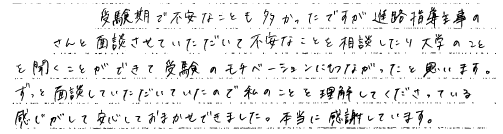 受験期で不安なことも多かったですが進路指導主事の
さんと面談させていただいて不安なことを相談したり大学のこと
を聞くことができて受験のモチベーションにもつながったと思います。
ずっと面談していただいていたので私のことを理解してくださっている
感じがして安心しておまかせできました。本当に感謝しています。